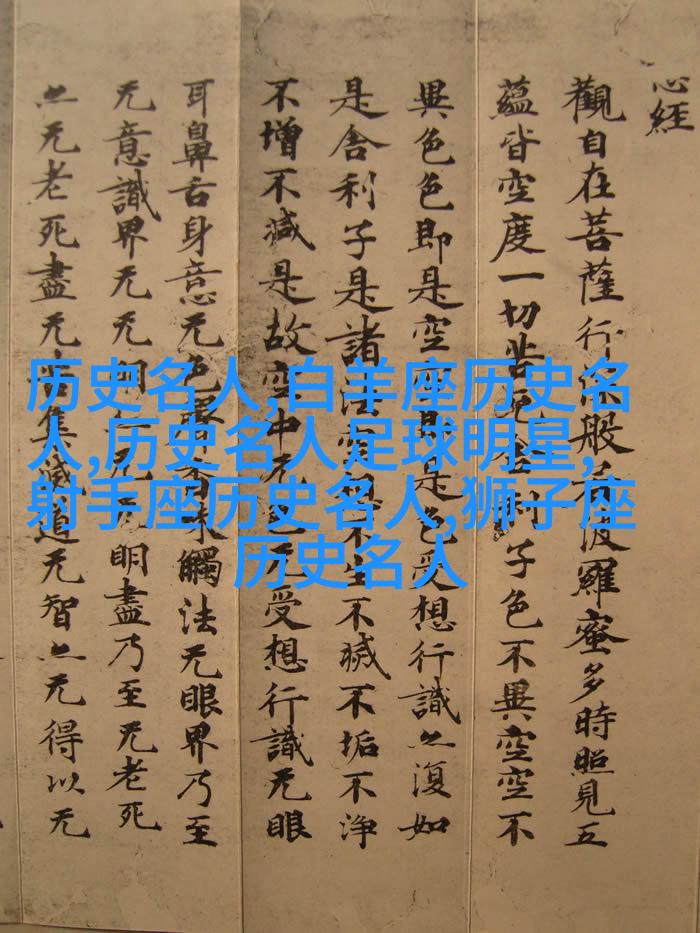 心経
觀自在菩薩行深般若波羅蜜多時照見五
蘊皆空度一切苦厄舍利子色不異空空不
異色色即是空空即是色受想行識亦復如
是舍利子是諸法空相不生不滅不垢不浄
不增不減是故空中无色无受想行識无眼
耳鼻舌身意无色聲香味觸法无眼界乃至
无意識界无无明亦无无明盡乃至无老死
亦无老死盡无苦集滅道无智亦无得以无
历史名人,白羊座历史名
人,历史名人足球明星,
射手座历史名人,狮子座
历史名人